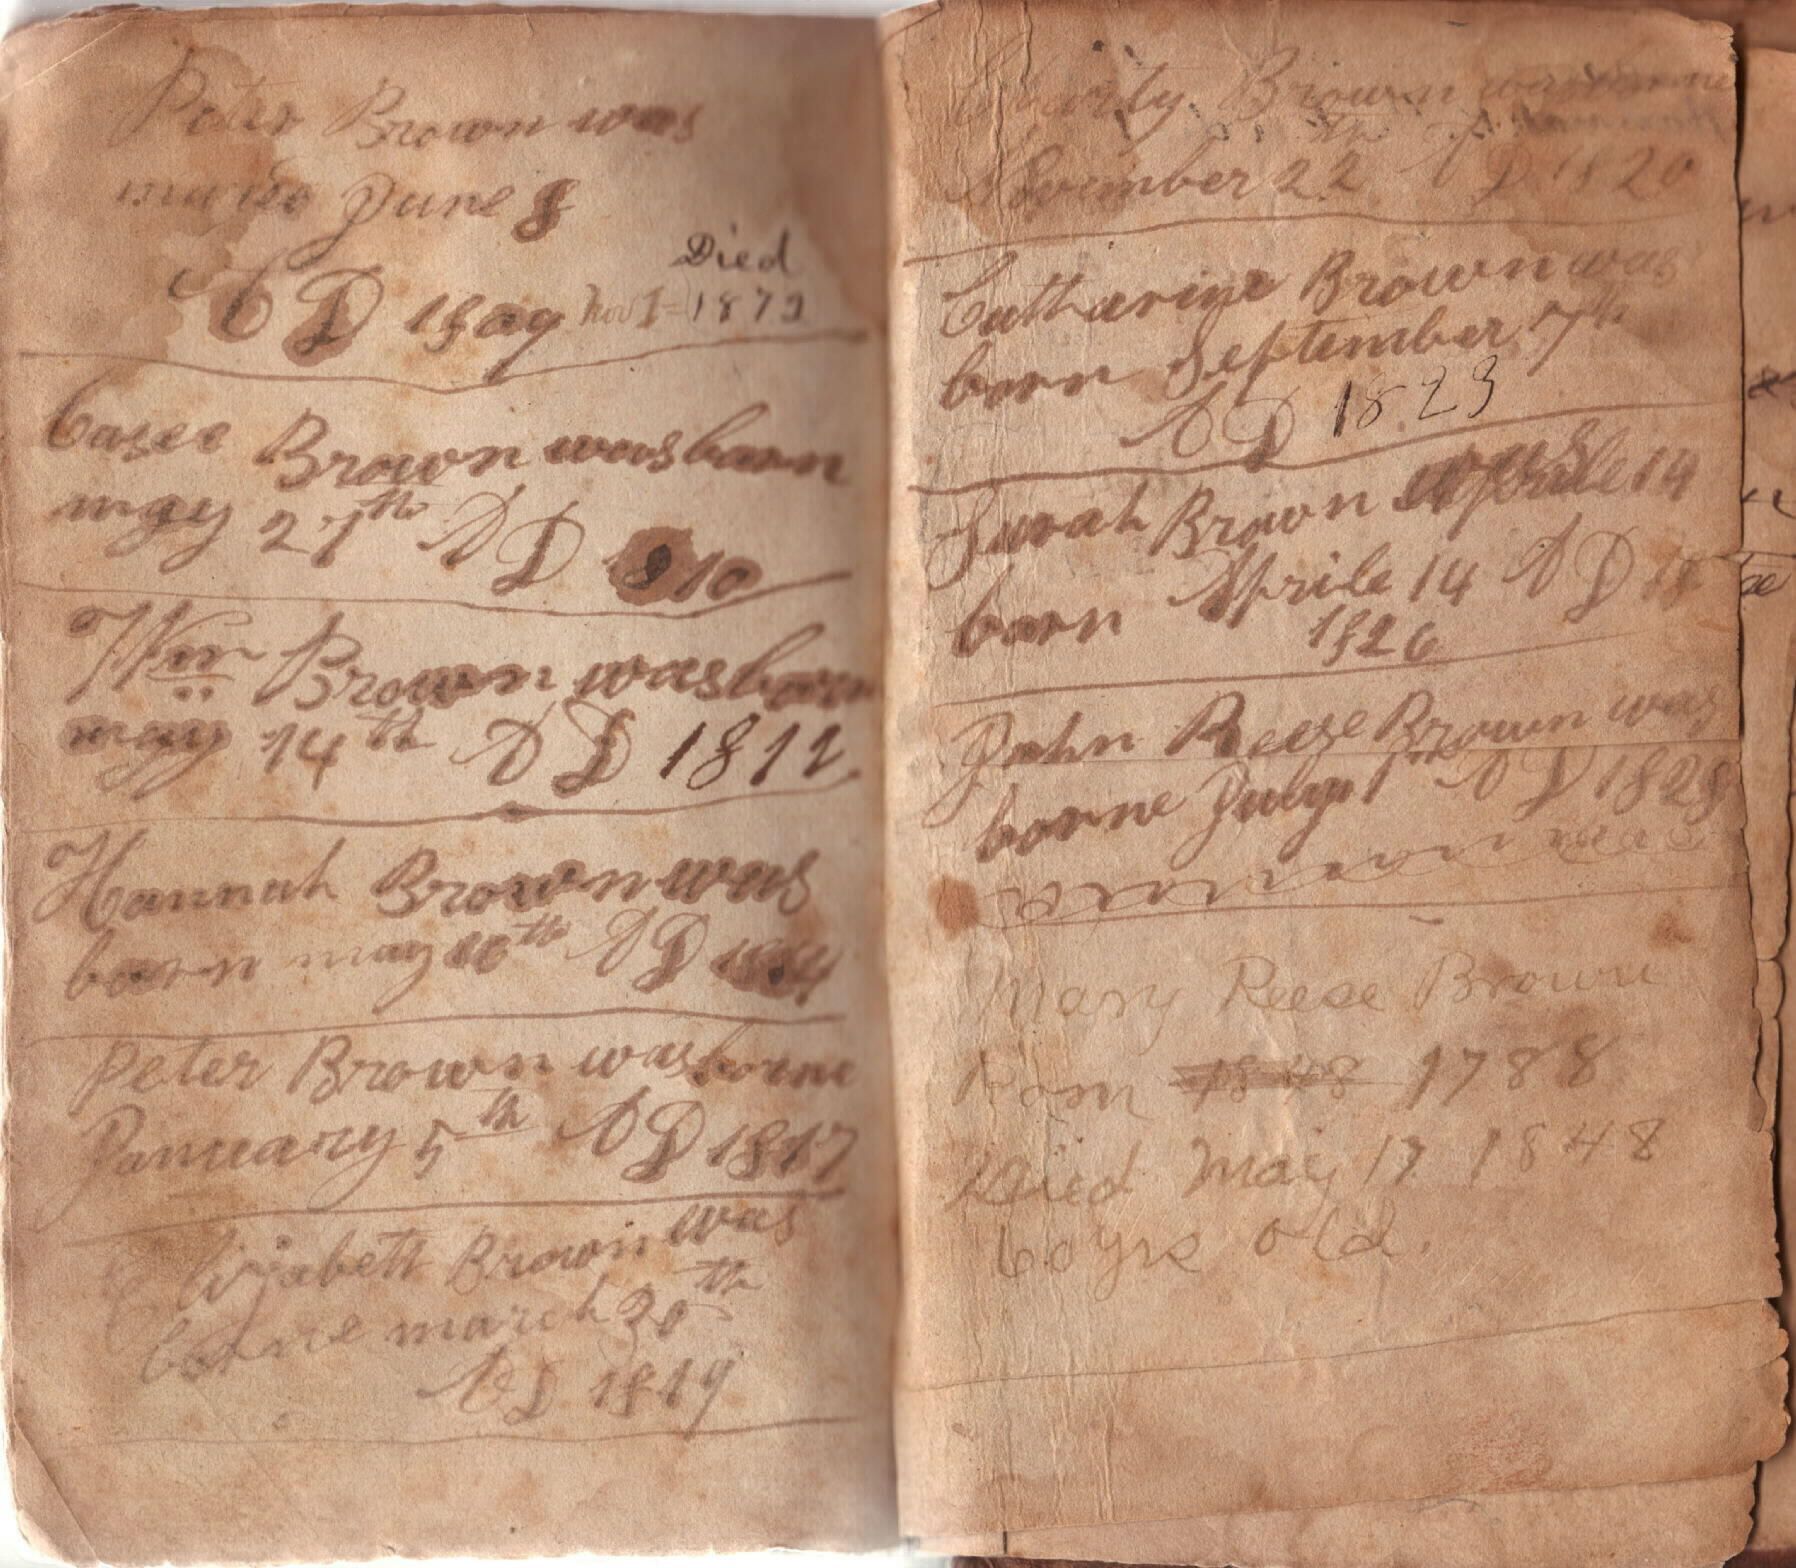 Peter Brown was
maried June 8
A D 1809 Nov 1 = 1879
Died
Casee Brown was barn
may 27th A D 1810
Wm Brown was born
may 14th A D 1812
Hannah Brown was
barn may 10th A D 1814
Peter Brown was borne
January 5th A D 1817
Elizabeth Brown was
borne march 20th
A D 1819
Charity Brown was borne
November 22th A D 1820
Catharine Brown was
born September 7th
A D 1823
Sarah Brown was Aprile 14
barn Aprile 14 A D 18
1826
John Reese Brown was
borne July 1th A D 1828
Mary Reese Brown
Born 1848 1788
Died May 17 1848
60 yrs old.